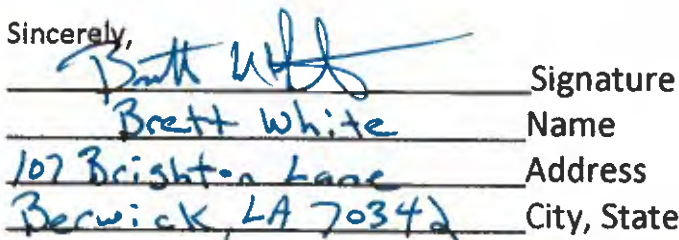 Sincerely,
Brett White Signature
Brett White Name
107 Brighton Lane Address
Berwick, LA 70342 City, State